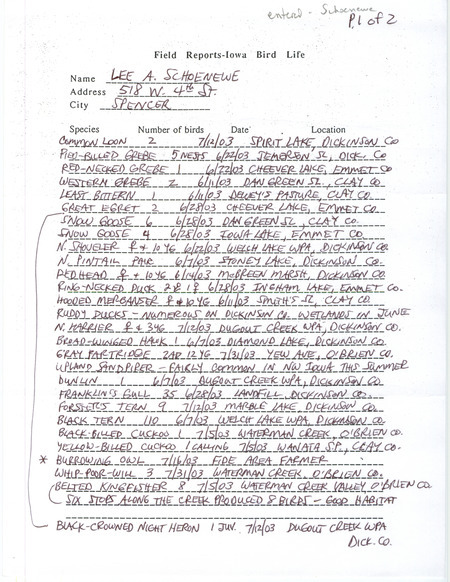 enterd - Schoenewe
P.1 of 2
Field Reports-Iowa Bird Life
Name LEE A. SCHOENEWE
Address 518 W. 4th St.
City SPENCER
Species Number of birds Date Location
COMMON LOON 2 7/12/03 SPIRIT LAKE, DICKINSON CO
PIED-BILLED GREBE 5 NESTS 6/22/03 JEMERSON SL, DICK. CO
RED-NECKED GREBE 1 6/22/03 CHEEVER LAKE, EMMET CO
WESTERN GREBE 2 6/11/03 DAN GREEN SL, CLAY CO.
LEAST BITTERN 1 6/11/03 DEWEY'S PASTURE, CLAY CO.
GREAT EGRET 2 6/28/03 CHEEVER LAKE, EMMET CO
SNOW GOOSE 6 6/28/03 DAN GREEN SL, CLAY CO.
SNOW GOOSE 4 6/28/03 IOWA LAKE, EMMET CO
N. SHOVELER ♀ + 10 YG 6/12/03 WELCH LAKE WPA, DICKINSON CO
N. PINTAIL PAIR 6/7/03 STONEY LAKE, DICKINSON CO.
REDHEAD ♀ + 10 YG 6/14/03 McBREEN MARSH, DICKINSON CO
RING-NECKED DUCK 2♂ 1♀ 6/28/03 INGHAM LAKE, EMMET CO.
HOODED MERGANSER ♀ + 10 YG 6/11/03 SMITH'S SL, CLAY CO.
RUDDY DUCKS - NUMEROUS ON DICKINSON CO WETLANDS IN JUNE
N. HARRIER ♀ + 3 YG 7/2/03 DUGOUT CREEK WPA, DICKINSON CO.
BROAD-WINGED HAWK 1 6/7/03 DIAMOND LAKE, DICKINSON CO.
GRAY PARTRIDGE 2AD 12YG 7/31/03 YEW AVE, O'BRIEN CO.
UPLAND SANDPIPER - FAIRLY COMMON IN NW IOWA THIS SUMMER
DUNLIN 1 6/7/03 DUGOUT CREEK WPA, DICKINSON CO
FRANKLIN'S GULL 35 6/28/03 LANDFILL DICKINSON CO.
FORSTER'S TERN 9 7/12/03 MARBLE LAKE, DICKINSON CO.
BLACK TERN 110 6/7/03 WELCH LAKE WPA, DICKINSON CO
BLACK-BILLED CUCKOO 1 7/5/03 WATERMAN CREEK, O'BRIEN CO.
YELLOW-BILLED CUCKOO 1 CALLING 7/5/03 WANATA S.P., CLAY CO.
* BURROWING OWL 7/16/03 FIDE AREA FARMER
WHIP-POOR-WILL 3 7/31/03 WATERMAN CREEK, O'BRIEN CO.
BELTED KINGFISHER 8 7/5/03 WATERMAN CREEK VALLEY O'BRIEN CO
SIX STOPS ALONG THE CREEK PRODUCED 8 BIRDS - GOOD HABITAT
BLACK-CROWNED NIGHT HERON 1 JUV. 7/2/03 DUGOUT CREEK WPA
DICK. CO.